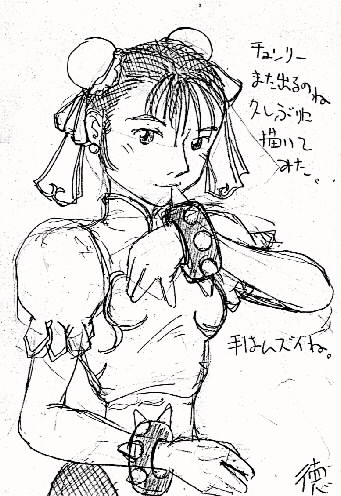 チュンリー
また出るのね
久しぶりに
描いて
みた。
手はムズイね。
徳